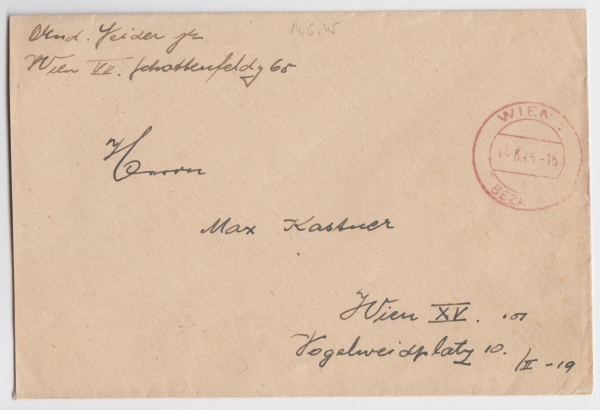 14.6.45
And. Seider jr.
Wien VII. Schottenfeldg 65
WIEN
6.45-15
BEZA
Herrn
Max Kastner
Wien XV. 101
Vogelweidplatz 10.
/II-19